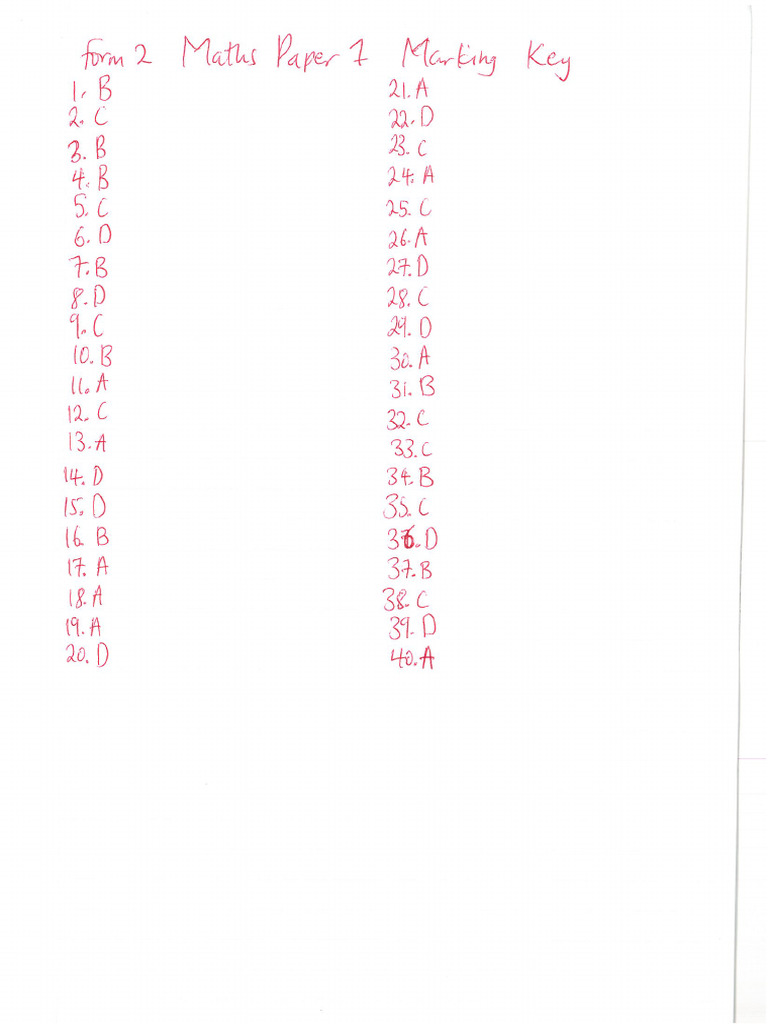 Form 2 Maths Paper 1 Marking Key
1. B
2. C
3. B
4. B
5. C
6. D
7. B
8. D
9. C
10. B
11. A
12. C
13. A
14. D
15. D
16. B
17. A
18. A
19. A
20. D
21. A
22. D
23. C
24. A
25. C
26. A
27. D
28. C
29. D
30. A
31. B
32. C
33. C
34. B
35. C
36. D
37. B
38. C
39. D
40. A